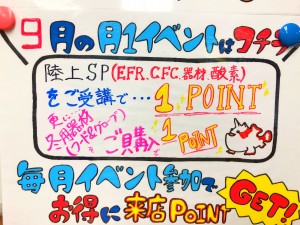 9月の月1イベントはコチラ
陸上SP(EFR.CFC.器材.酸素)
をご受講で…1 POINT
更に
冬用器材
(フード&グローブ)
ご購入で
1 POINT
毎月イベント参加で
お得に来店POINT
GET!